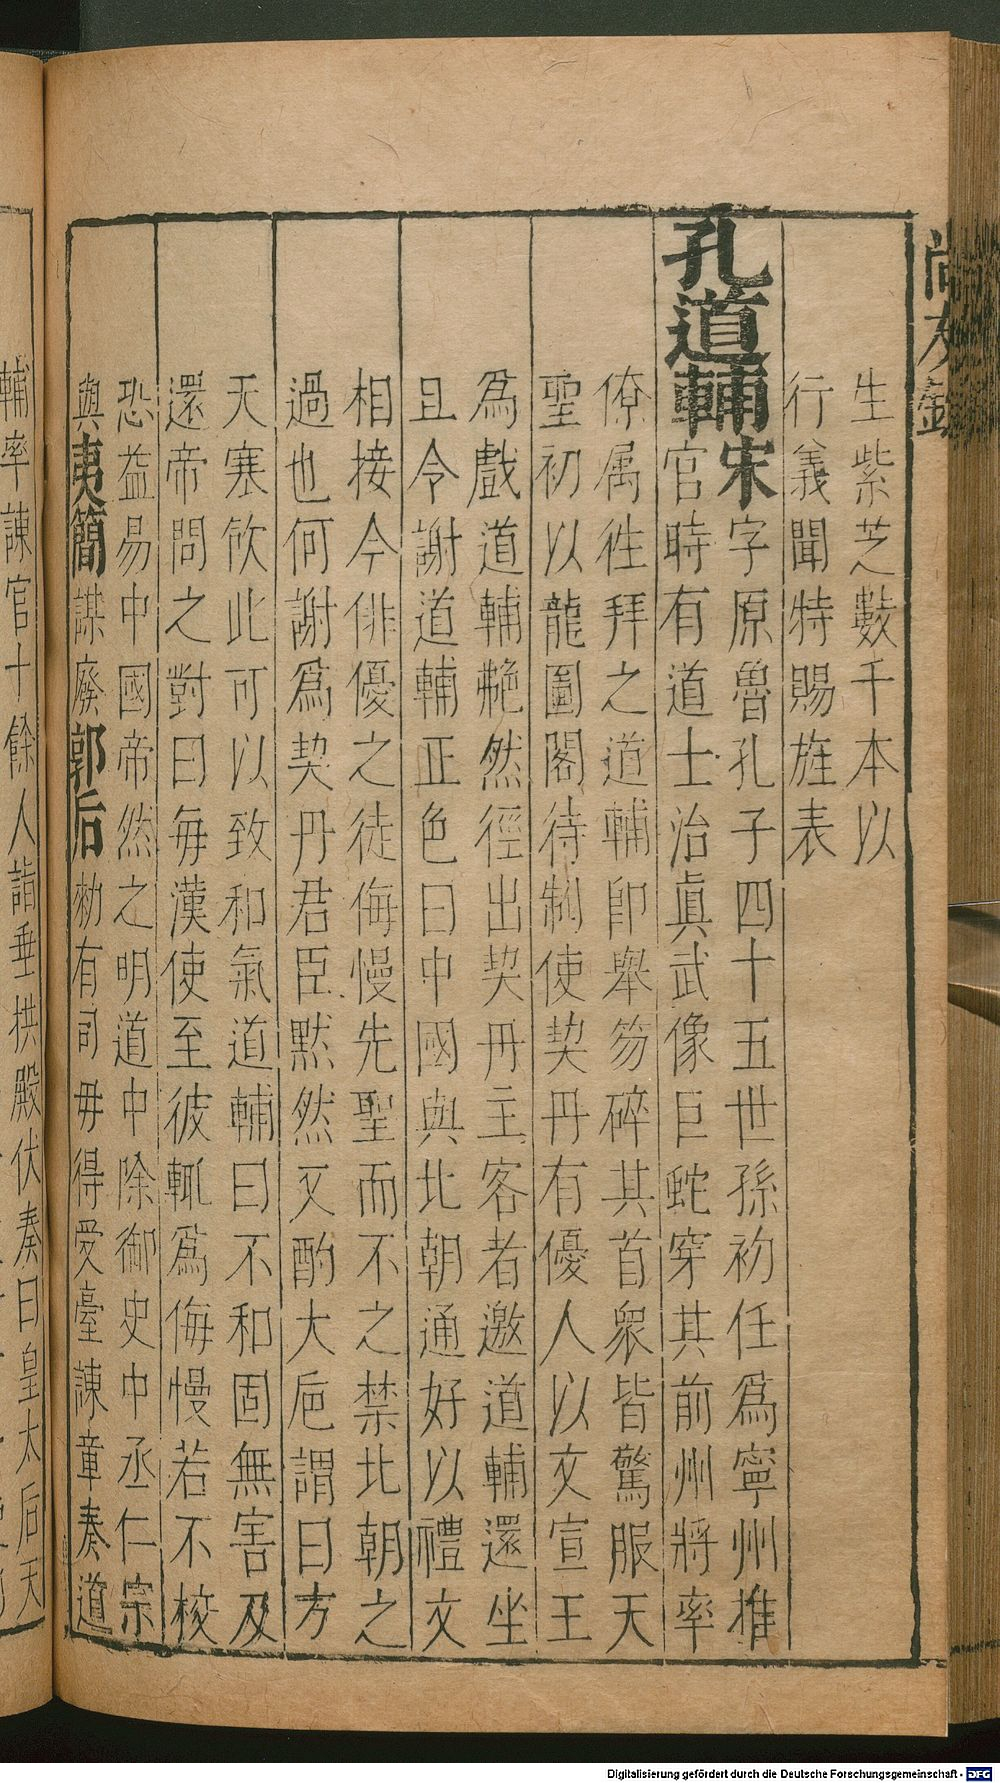 尚友錄
生紫芝數千本以
行義聞特賜旌表
孔道輔宋字原魯孔子四十五世孫初任爲寧州推
官時有道士治眞武像巨蛇穿其前州將率
僚属徃拜之道輔即舉笏碎其首衆皆驚服天
聖初以龍圖閣待制使契丹有優人以文宣王
爲戲道輔艴然徑出契丹主客者邀道輔還坐
且令謝道輔正色曰中國與北朝通好以禮文
相接今俳優之徒侮慢先聖而不之禁北朝之
過也何謝爲契丹君臣默然又酌大巵謂曰方
天寒飲此可以致和氣道輔曰不和固無害及
還帝問之對曰每漢使至彼輒爲侮慢若不校
恐益易中國帝然之明道中除御史中丞仁宗
與夷簡謀廢郭后勑有司毋得受臺諌章奏道
輔率諌官十餘人詣垂拱殿伏奏曰皇太后天
Digitalisierung gefördert durch die Deutsche Forschungsgemeinschaft - DFG